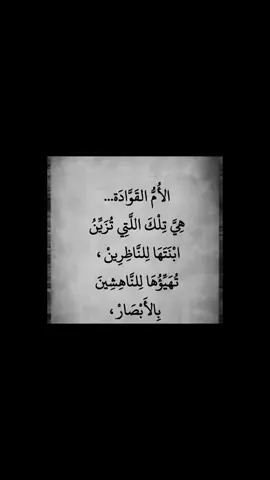 الأُمُّ القَوَّادَة...
هِيَّ تِلْكَ اللَّتِي تُزَيِّنُ
ابْنَتَهَا لِلنَّاظِرِينْ ،
تُهَيِّؤُهَا لِلنَّاهِشِينَ
بِالأَبْصَارْ ،